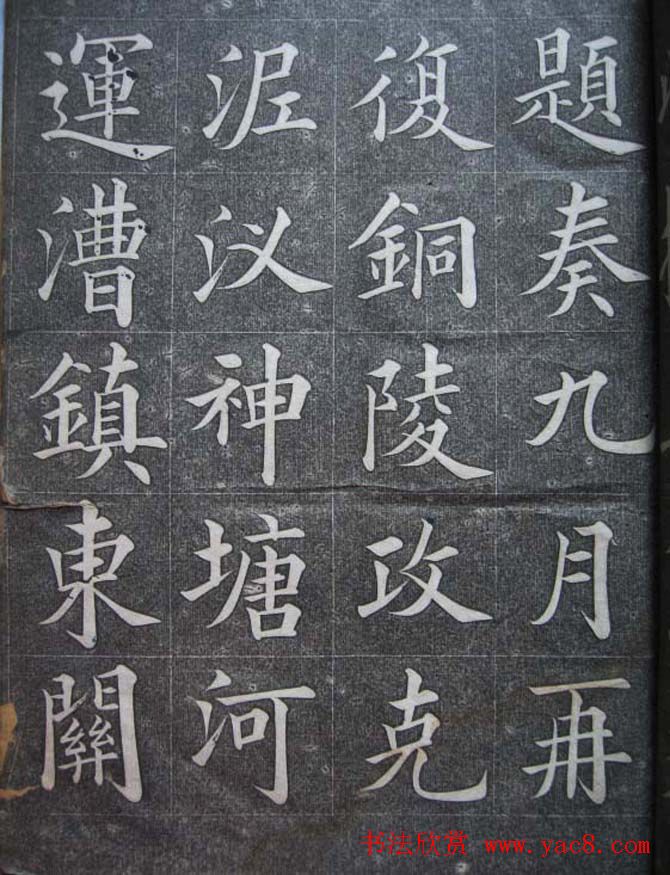 題奏九月再
復銅陵攻克
泥汊神塘河
運漕鎮東關
书法欣赏 www.yac8.com